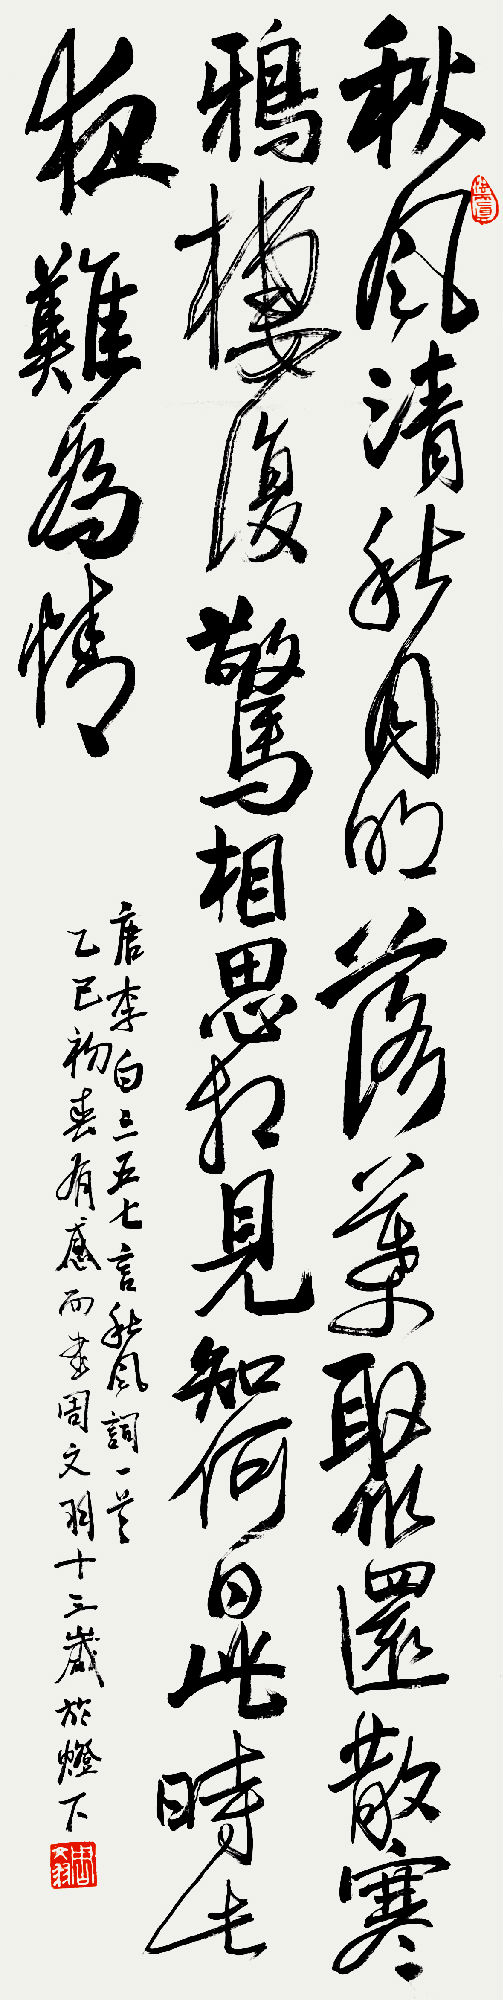 秋風清秋月明落葉聚還散寒
鴉棲復驚相思相見知何日此時此
夜難為情
唐李白三五七言秋風詞一首
乙巳初春有感而書周文羽十三歲於燈下